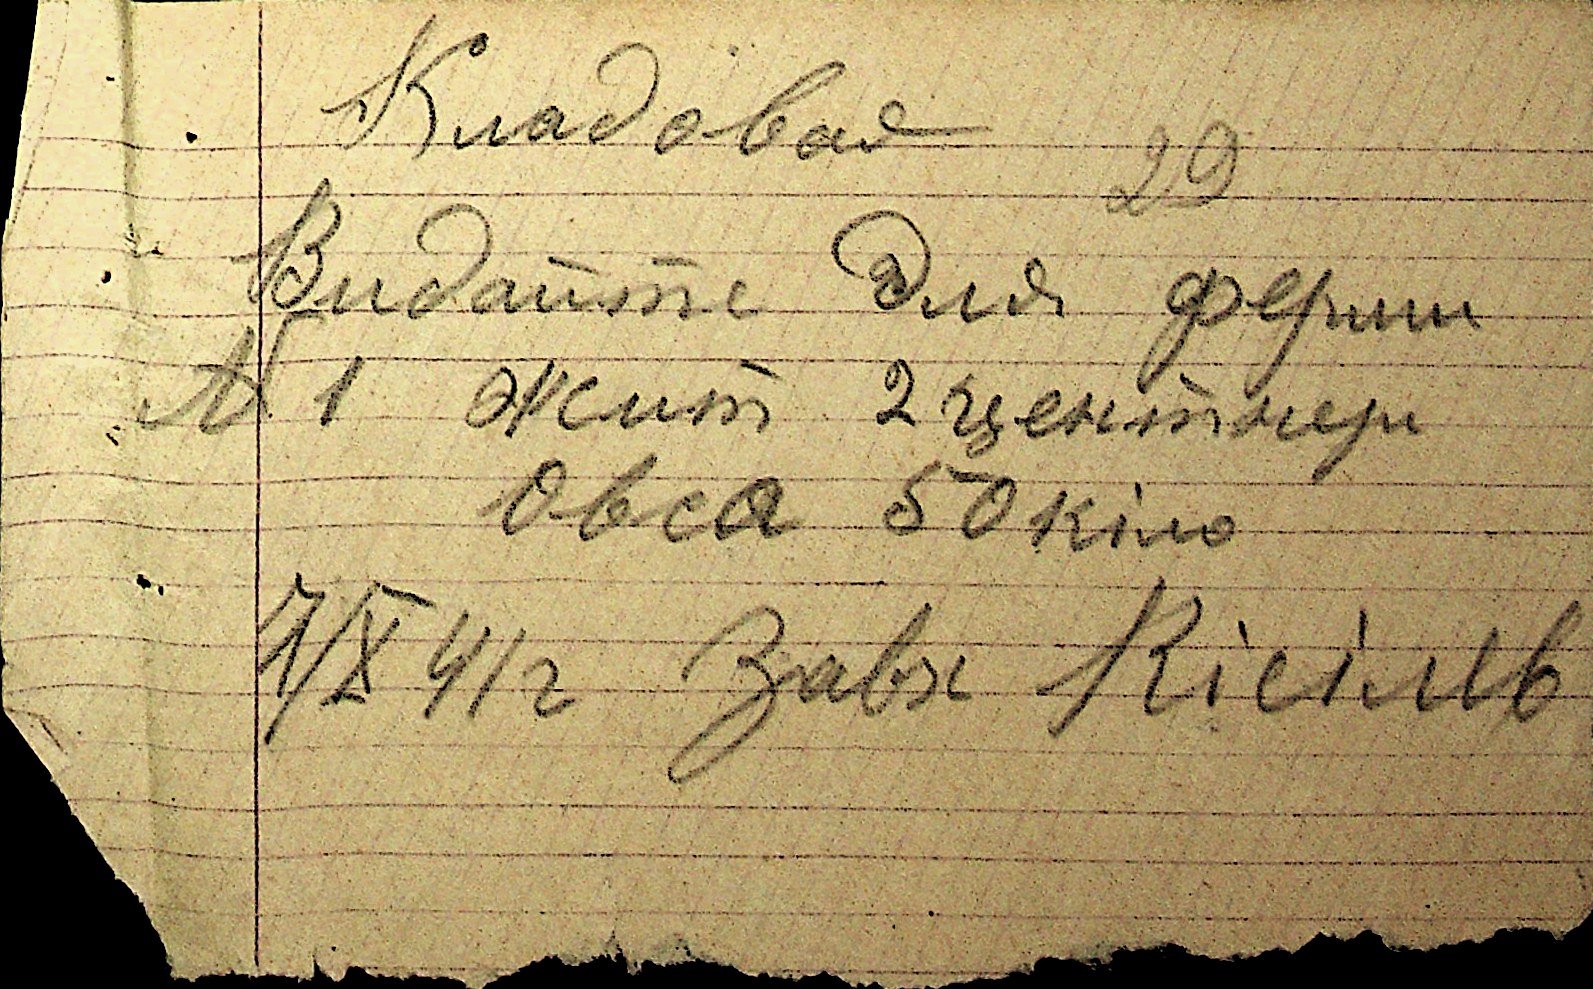 Кладовая
29
Видайте для ферми
№ 1 жит 2 центнери
Овса 50 кіло
1/X 41 г Завх Кісіль